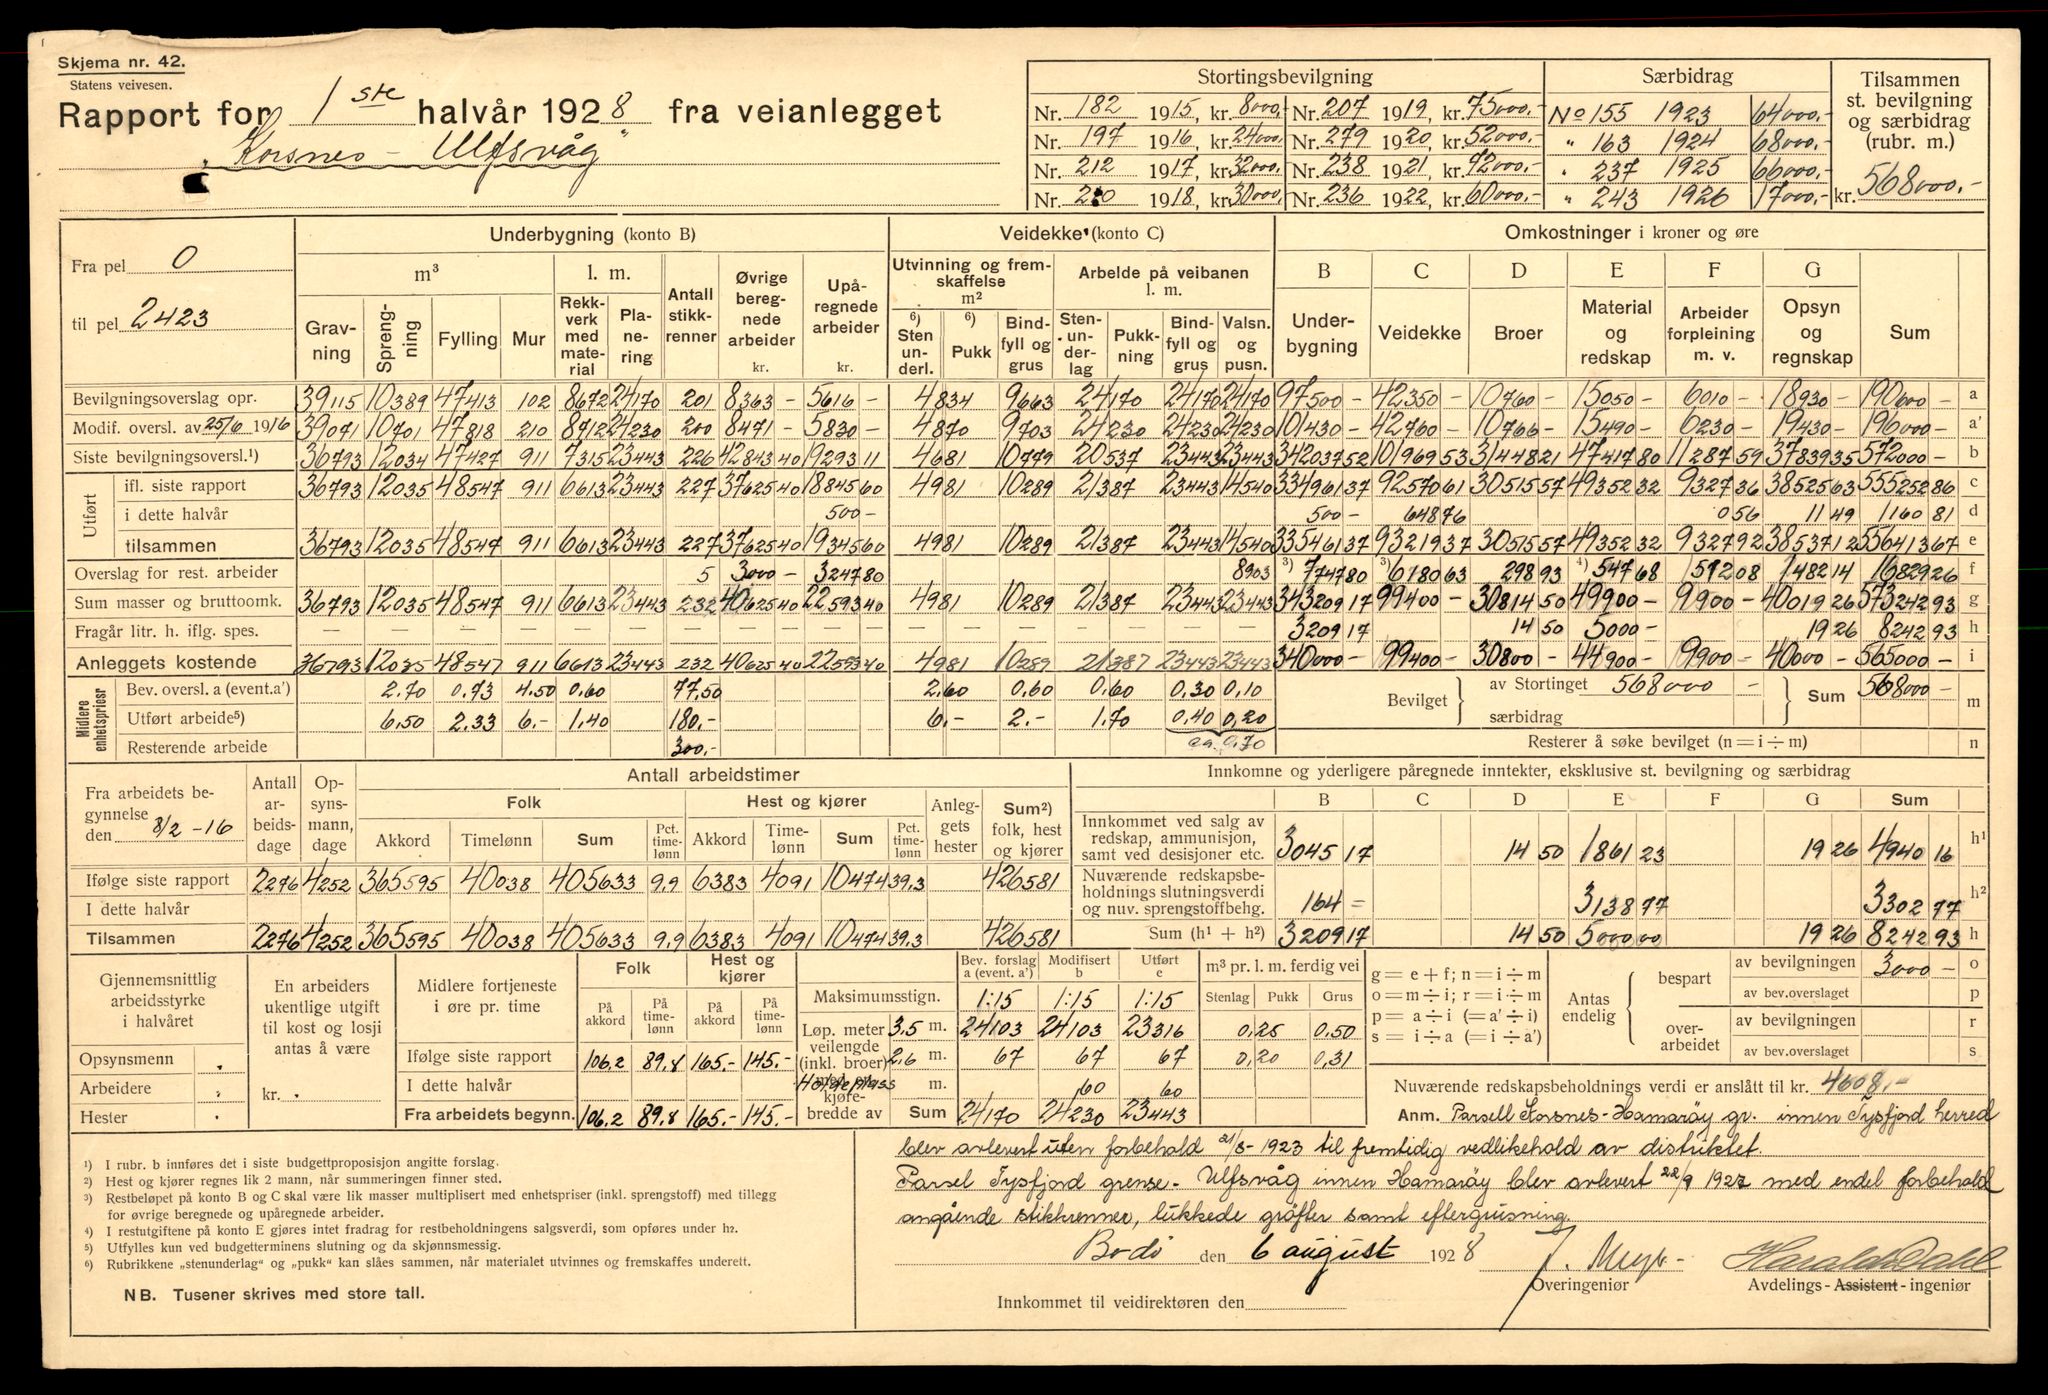 Skjema nr. 42.
Statens veivesen.
Rapport for 1 ste halvår 1928 fra veianlegget
„Korsnes - Ulfsvåg"
Stortingsbevilgning | Særbidrag | Tilsammen st. bevilgning og særbidrag (rubr. m.)
Nr. 182 1915, kr. 8000,- Nr. 207 1919, kr. 75000,- No 155 1923 64000,-
Nr. 197 1916, kr. 24000,- Nr. 279 1920, kr. 52000,- " 163 1924 68000,-
Nr. 212 1917, kr. 32000,- Nr. 238 1921, kr. 72000,- " 237 1925 66000,-
Nr. 1918, kr. 30000,- Nr. 236 1922, kr. 60000,- " 243 1926 17000,- kr. 568000,-
Fra pel 0
til pel 2423
Underbygning (konto B) | Veidekke (konto C) | Omkostninger i kroner og øre
m³ | l. m. | Antall stikkrenner | Øvrige beregnede arbeider kr. | Upåregnede arbeider kr. | Utvinning og fremskaffelse m² | Arbeide på veibanen l. m. | B | C | D | E | F | G
Gravning | Sprengning | Fylling | Mur | Rekkverk med material | Planering | ⁶) Sten underl. | ⁶) Pukk | Bindfyll og grus | Stenunderlag | Pukkning | Bindfyll og grus | Valsn. og pusn. | Underbygning | Veidekke | Broer | Material og redskap | Arbeider forpleining m. v. | Opsyn og regnskap | Sum
Bevilgningsoverslag opr. 39115 10389 47413 102 8672 24170 201 8363 - 5616 - 4834 9663 24170 24170 24170 97500 - 42350 - 10760 - 15050 - 6010 - 18930 - 190600 - a
Modif. oversl. av 25/6 1916 39071 10701 47818 210 8712 24230 200 8471 - 5830 - 4870 9703 24230 24230 24230 101430 - 42760 - 10766 - 15490 - 6230 - 19430 - 196000 - a'
Siste bevilgningsoversl.¹) 36793 12034 47427 911 7315 23443 226 42843 40 19293 11 4681 10779 20537 23443 23443 342037 52 101969 53 31448 21 47417 80 11287 59 37839 35 572000 - b
Utført
ifl. siste rapport 36793 12035 48547 911 6613 23443 227 37625 40 18845 60 4981 10289 21387 23443 14540 334961 37 92570 61 30515 57 49352 32 9327 36 38525 63 555252 86 c
i dette halvår 500 - 500 - 648 76 0 56 11 49 1160 81 d
tilsammen 36793 12035 48547 911 6613 23443 227 37625 40 19345 60 4981 10289 21387 23443 14540 335461 37 93219 37 30515 57 49352 32 9327 92 38537 12 556413 67 e
Overslag for rest. arbeider 5 3000 - 3247 80 8903 ³) 7747 80 ³) 6180 63 298 93 ⁴) 547 68 572 08 1482 14 16829 26 f
Sum masser og bruttoomk. 36793 12035 48547 911 6613 23443 232 40625 40 22593 40 4981 10289 21387 23443 23443 343209 17 99400 - 30814 50 49900 - 9900 - 40019 26 573242 93 g
Fragår litr. h. iflg. spes. — — — — — — — — — — — — — — 3209 17 14 50 5000 - 19 26 8242 93 h
Anleggets kostende 36793 12035 48547 911 6613 23443 232 40625 40 22593 40 4981 10289 21387 23443 23443 340000 - 99400 - 30800 - 44900 - 9900 - 40000 - 565000 - i
Midlere enhetspriser
Bev. oversl. a (event. a') 2.70 0.73 4.50 0.60 77.50 2.60 0.60 0.60 0.30 0.10
Utført arbeide⁵) 6.50 2.33 6.- 1.40 180.- 6.- 2.- 1.70 0.40 0.20
Resterende arbeide 300.- ca. 0.70
Bevilget av Stortinget 568000 - Sum 568000 - m
særbidrag
Resterer å søke bevilget (n = i ÷ m) n
Fra arbeidets begynnelse den 8/2 -16
Antall arbeidsdage | Opsynsmann, dage | Antall arbeidstimer
Folk | Hest og kjører | Anleggets hester | Sum²) folk, hest og kjører
Akkord | Timelønn | Sum | Pct. timelønn | Akkord | Timelønn | Sum | Pct. timelønn
Ifølge siste rapport 2276 4252 365595 40038 405633 9.9 6383 4091 10474 39.3 426581
I dette halvår
Tilsammen 2276 4252 365595 40038 405633 9.9 6383 4091 10474 39.3 426581
Innkomne og yderligere påregnede inntekter, eksklusive st. bevilgning og særbidrag
B | C | D | E | F | G | Sum
Innkommet ved salg av redskap, ammunisjon, samt ved desisjoner etc. 3045 17 14 50 1861 23 19 26 4940 16 h¹
Nuværende redskapsbeholdnings slutningsverdi og nuv. sprengstoffbehg. 164 = 3138 77 3302 77 h²
Sum (h¹ + h²) 3209 17 14 50 5000 00 19 26 8242 93 h
Gjennemsnittlig arbeidsstyrke i halvåret
Opsynsmenn
Arbeidere
Hester
En arbeiders ukentlige utgift til kost og losji antas å være
kr.
Midlere fortjeneste i øre pr. time
Folk | Hest og kjører
På akkord | På timelønn | På akkord | På timelønn
Ifølge siste rapport 106.2 89.8 165.- 145.-
I dette halvår
Fra arbeidets begynn. 106.2 89.8 165.- 145.-
Bev. forslag a (event. a') | Modifisert b | Utført e
Maksimumsstign. 1:15 1:15 1:15
Løp. meter veilengde (inkl. broer) 3.5 m. 24103 24103 23316
2.6 m. 67 67 67
Møteplass m. 60 60
kjørebredde av Sum 24170 24230 23443
m³ pr. l. m. ferdig vei
Stenlag | Pukk | Grus
0,25 0,50
0,20 0,31
g = e + f; n = i ÷ m
o = m ÷ i; r = i ÷ m
p = a ÷ i (= a' ÷ i)
s = i ÷ a (= i ÷ a')
Antas endelig
bespart av bevilgningen 3000 - o
av bev.overslaget p
overarbeidet av bevilgningen r
av bev.overslaget s
Nuværende redskapsbeholdnings verdi er anslått til kr. 4608,-
Anm. Parsell Korsnes - Hamarøy gr. innen Tysfjord herred
blev avlevert uten forbehold 21/8 - 1923 til fremtidig vedlikehold av distriktet.
Parsel Tysfjord grense - Ulfsvåg innen Hamarøy blev avlevert 22/9 1927 med endel forbehold
angående stikkrenner, lukkede grøfter samt eftergrusning.
¹) I rubr. b innføres det i siste budgettproposisjon angitte forslag.
²) Hest og kjører regnes lik 2 mann, når summeringen finner sted.
³) Restbeløpet på konto B og C skal være lik masser multiplisert med enhetspriser (inkl. sprengstoff) med tillegg for øvrige beregnede og upåregnede arbeider.
⁴) I restutgiftene på konto E gjøres intet fradrag for restbeholdningens salgsverdi, som opføres under h₂.
⁵) Utfylles kun ved budgetterminens slutning og da skjønnsmessig.
⁶) Rubrikkene „stenunderlag" og „pukk" kan slåes sammen, når materialet utvinnes og fremskaffes underett.
NB. Tusener skrives med store tall.
Bodø den 6 august 1928
Overingeniør
Harald Dahl
Avdelings - Assistent - ingeniør
Innkommet til veidirektøren den